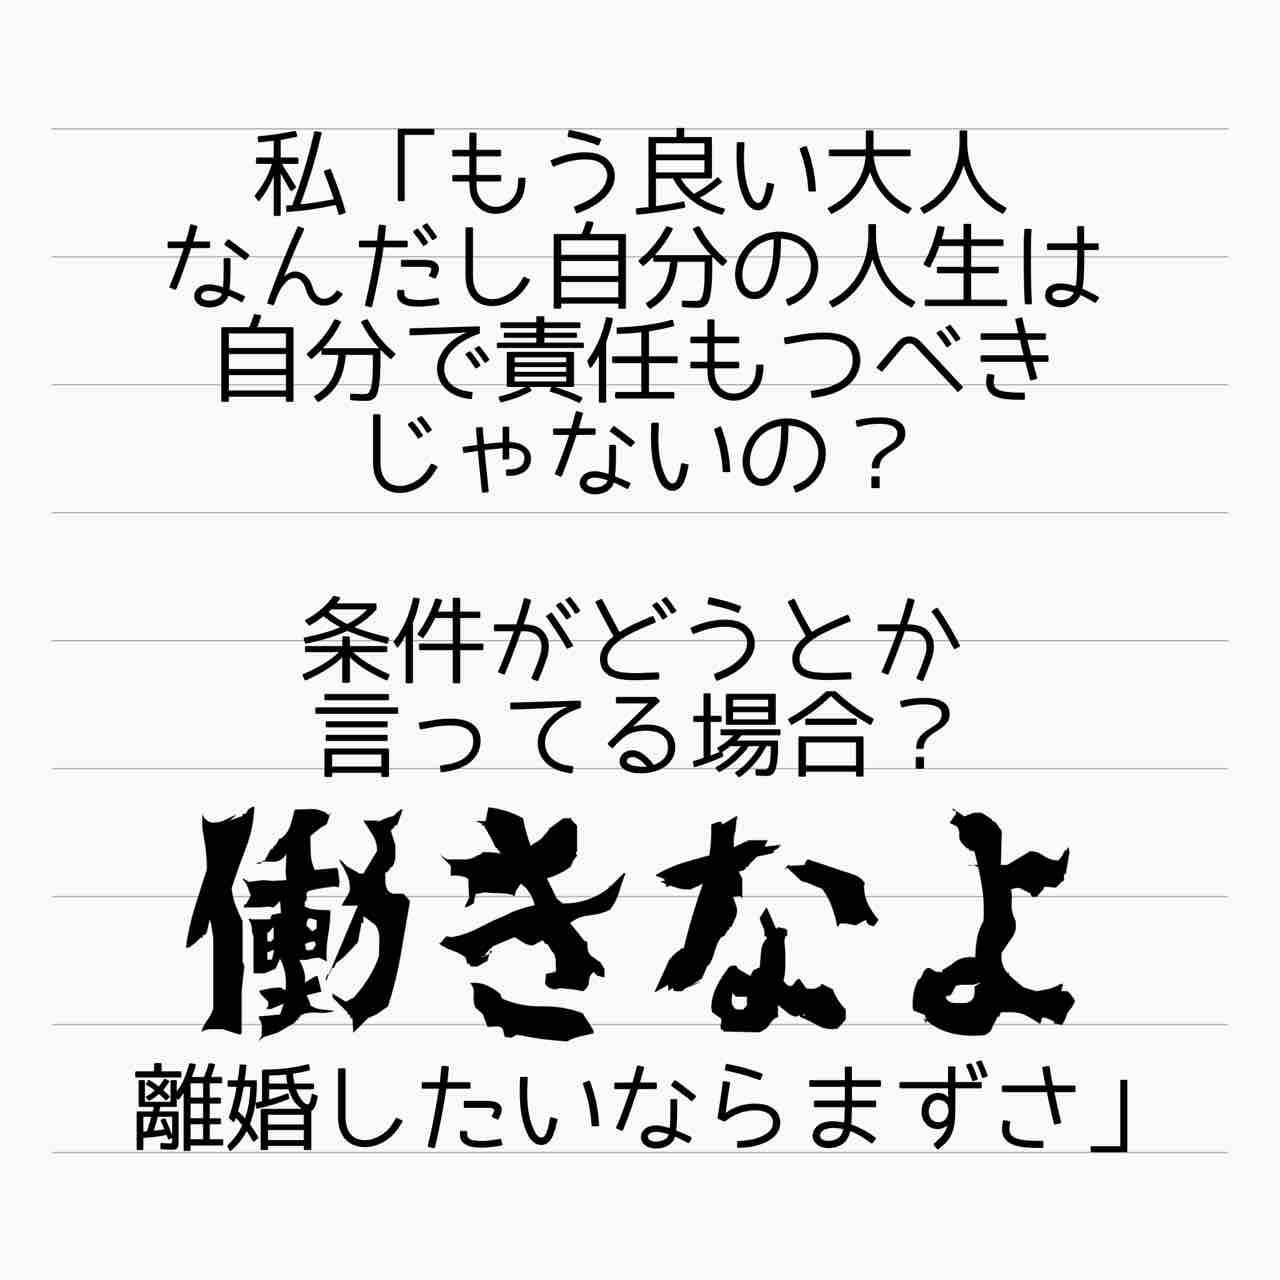 私「もう良い大人
なんだし自分の人生は
自分で責任もつべき
じゃないの？
条件がどうとか
言ってる場合？
働きなよ
離婚したいならまずさ」